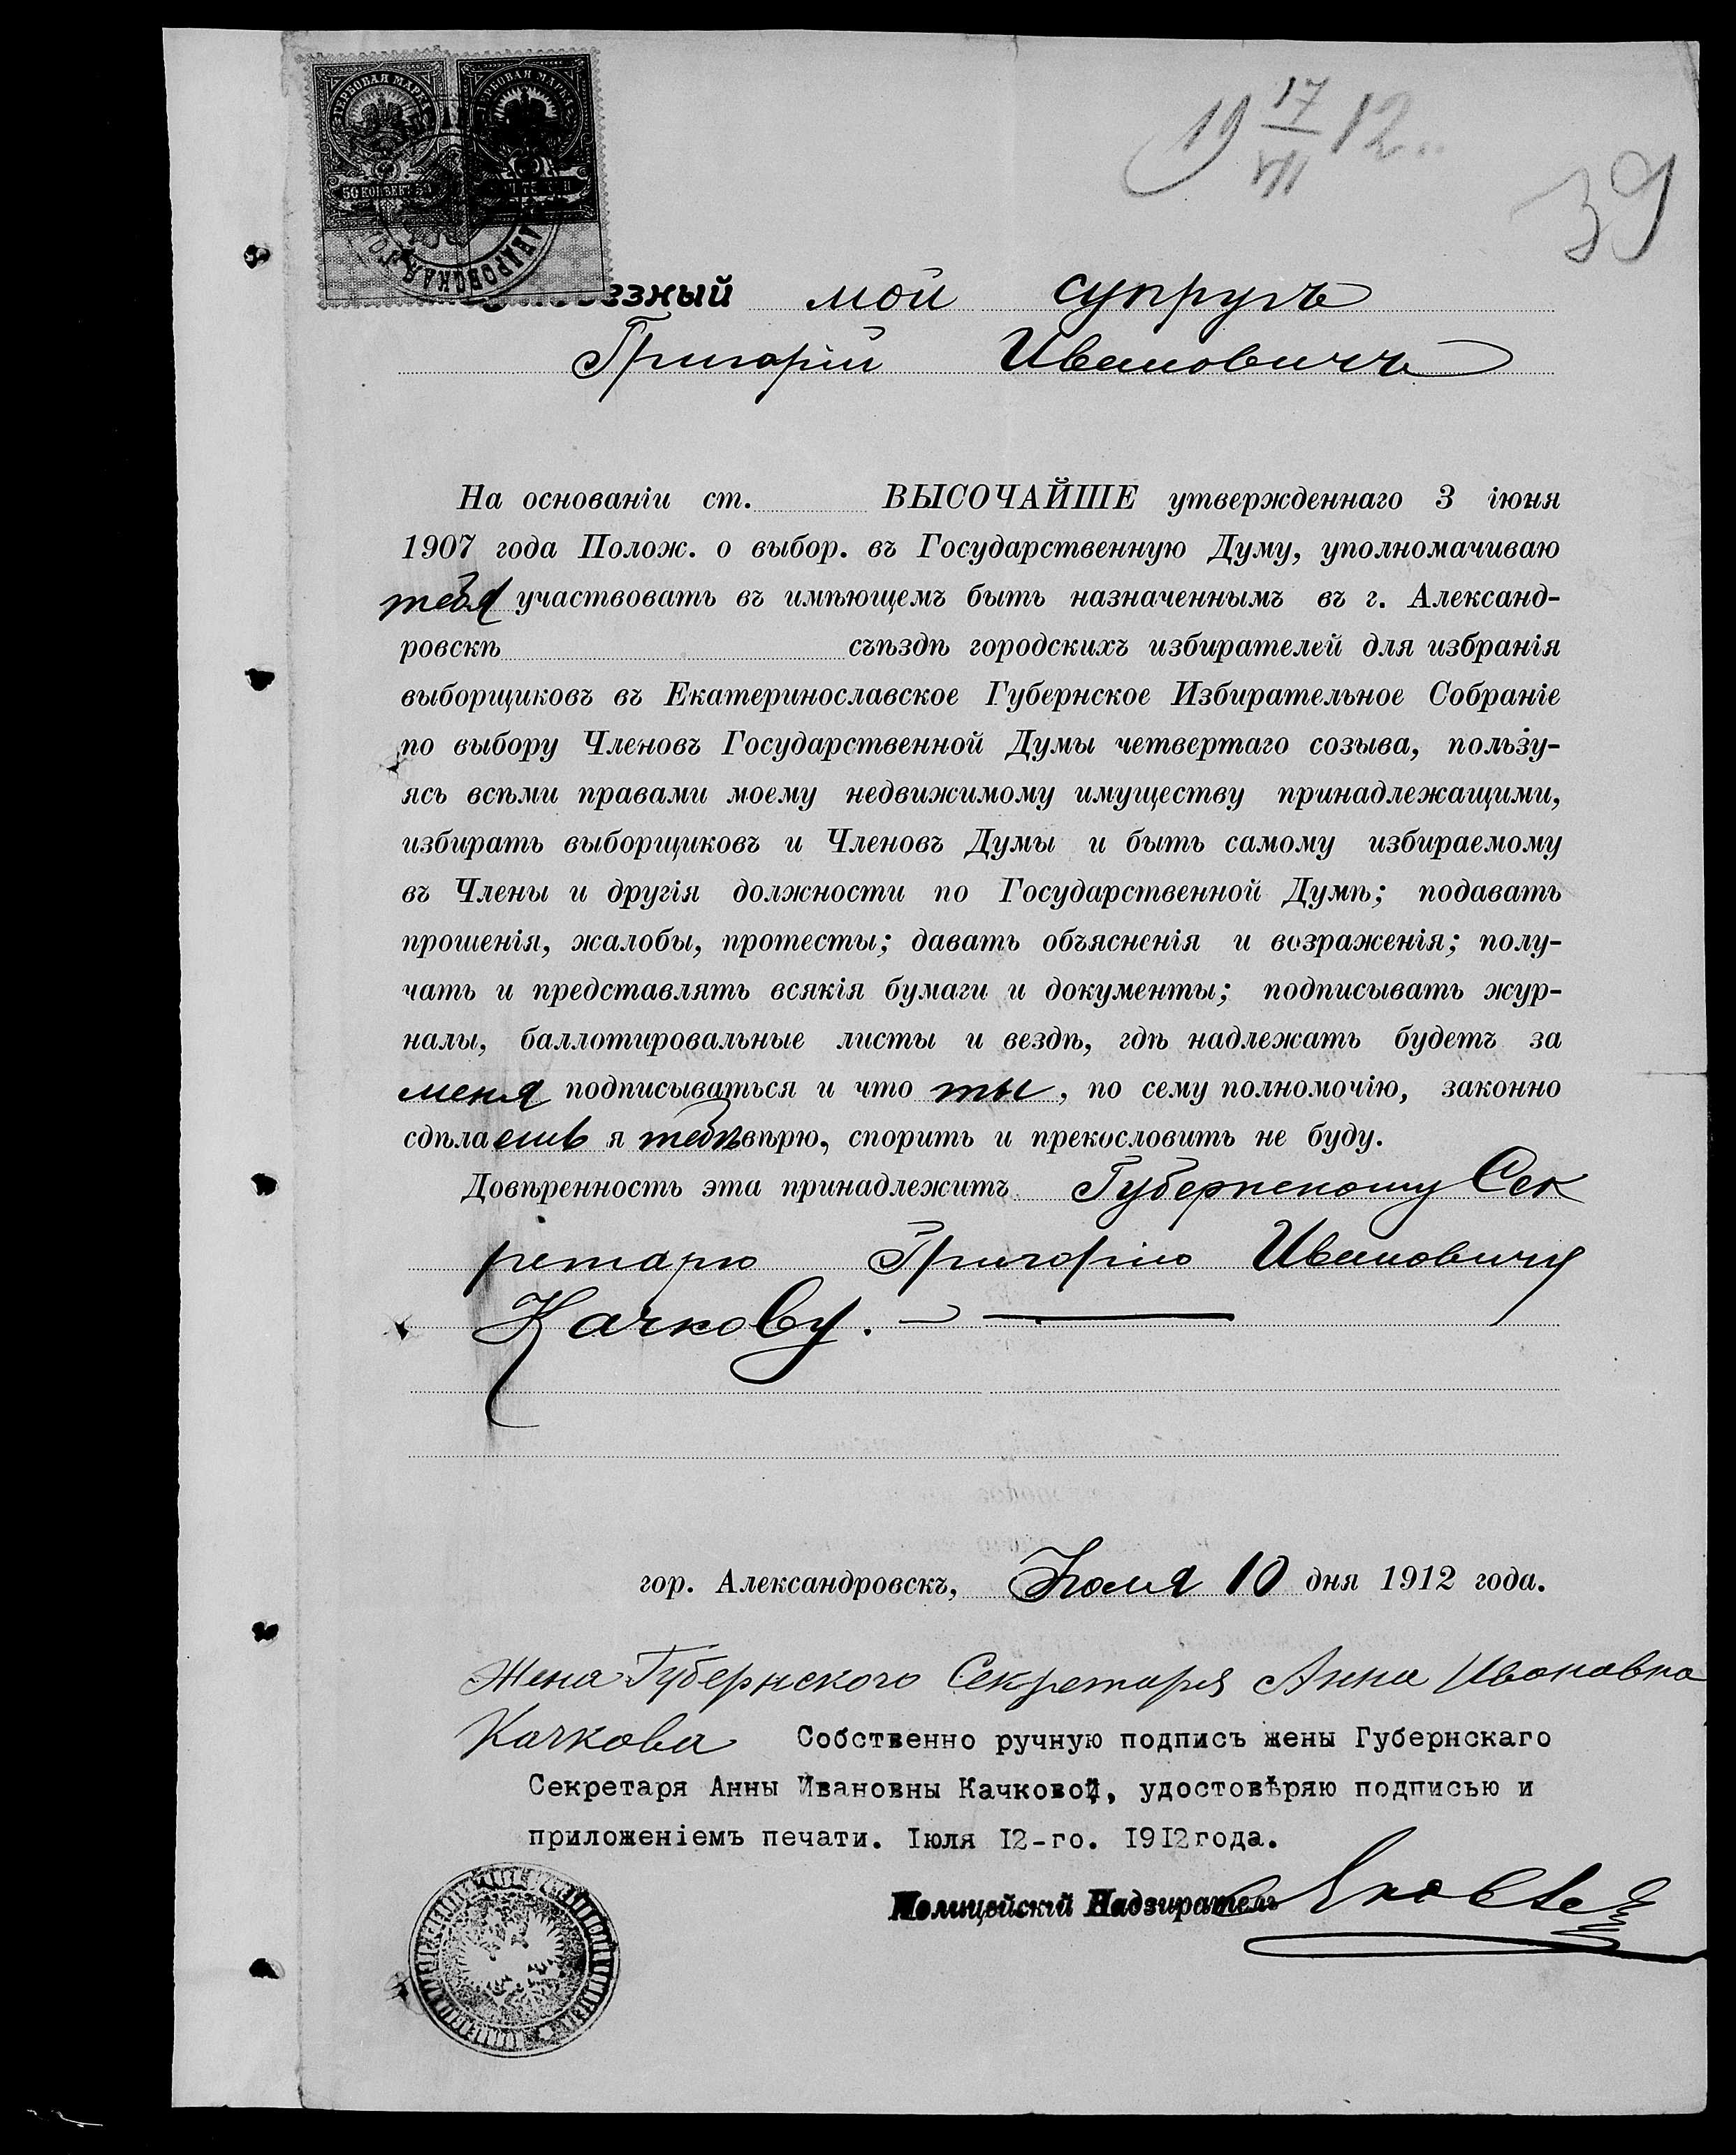 ГЕРБОВАЯ МАРКА ГЕРБОВАЯ МАРКА
50 КОПѢЕКЪ 50 75
19 17/VII 12
39
мой супругъ
Григорій Ивановичъ
На основаніи ст. ВЫСОЧАЙШЕ утвержденнаго 3 іюня
1907 года Полож. о выбор. въ Государственную Думу, уполномачиваю
тебя участвовать въ имѣющемъ быть назначеннымъ въ г. Александ-
ровскѣ съѣздѣ городскихъ избирателей для избранія
выборщиковъ въ Екатеринославское Губернское Избирательное Собраніе
по выбору Членовъ Государственной Думы четвертаго созыва, пользу-
ясь всѣми правами моему недвижимому имуществу принадлежащими,
избирать выборщиковъ и Членовъ Думы и быть самому избираемому
въ Члены и другія должности по Государственной Думѣ; подавать
прошенія, жалобы, протесты; давать объясненія и возраженія; полу-
чать и представлять всякія бумаги и документы; подписывать жур-
налы, баллотировальные листы и вездѣ, гдѣ надлежать будетъ за
меня подписываться и что ты, по сему полномочію, законно
сдѣлаешь я тебѣ вѣрю, спорить и прекословить не буду.
Довѣренность эта принадлежитъ Губернскому Сек
ретарю Григорію Ивановичу
Качкову.
гор. Александровскъ, Іюля 10 дня 1912 года.
Жена Губернского Секретаря Анна Ивановна
Качкова Собственно ручную подпись жены Губернскаго
Секретаря Анны Ивановны Качковой, удостовѣряю подписью и
приложеніемъ печати. Іюля 12-го. 1912 года.
Полицейскій Надзиратель